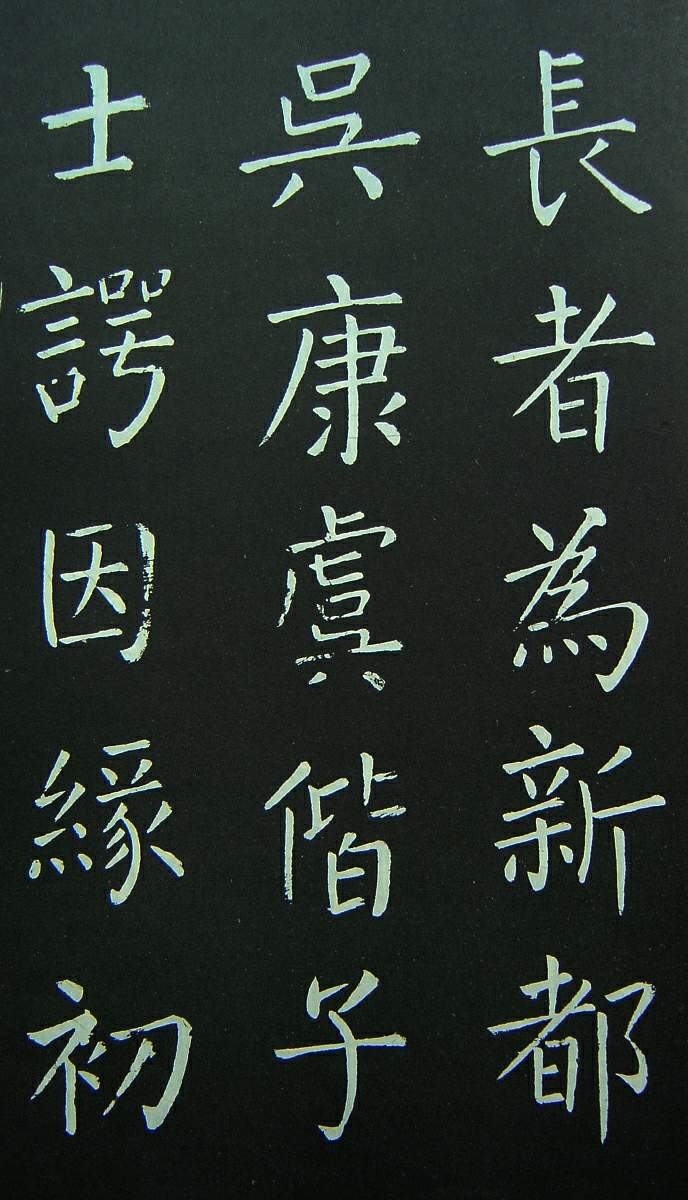 長者為新都
吳康虞偕子
士諤因緣初